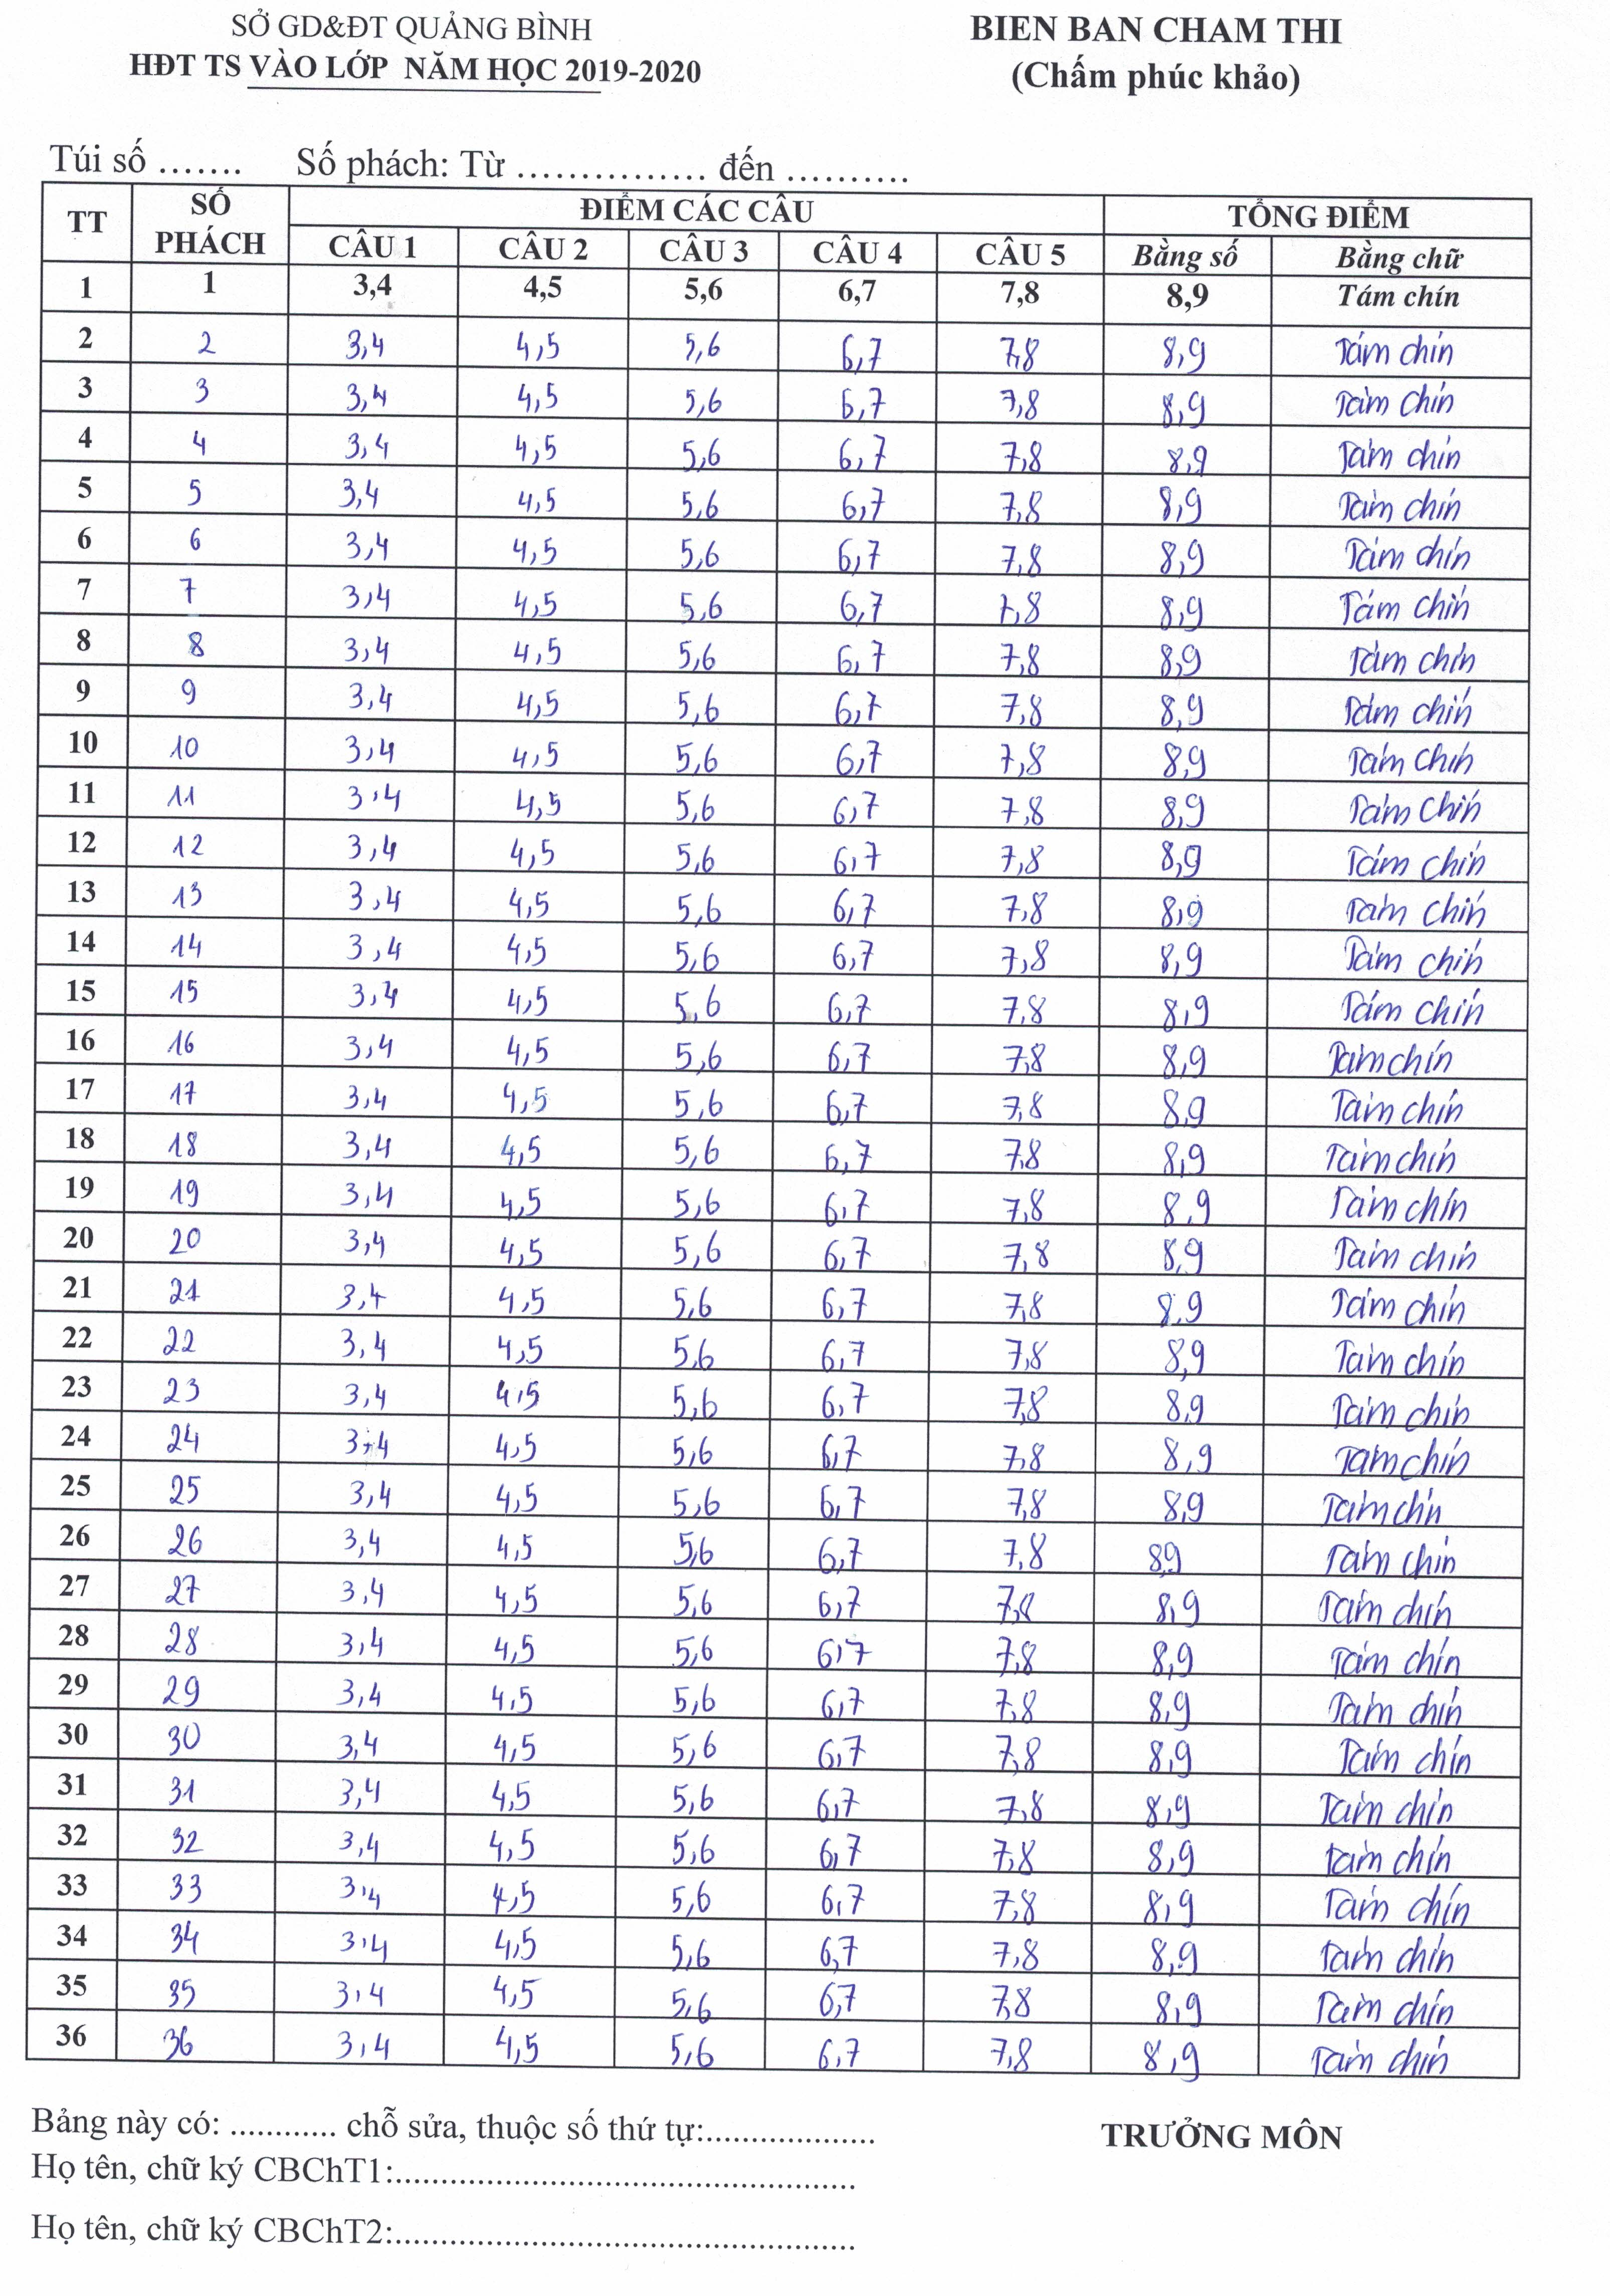 SỞ GD&ĐT QUẢNG BÌNH
HĐT TS VÀO LỚP NĂM HỌC 2019-2020
BIEN BAN CHAM THI
(Chấm phúc khảo)
Túi số ....... Số phách: Từ ............... đến ..........
TT SỐ PHÁCH ĐIỂM CÁC CÂU TỔNG ĐIỂM
CÂU 1 CÂU 2 CÂU 3 CÂU 4 CÂU 5 Bằng số Bằng chữ
1 1 3,4 4,5 5,6 6,7 7,8 8,9 Tám chín
2 2 3,4 4,5 5,6 6,7 7,8 8,9 Tám chín
3 3 3,4 4,5 5,6 6,7 7,8 8,9 Tám chín
4 4 3,4 4,5 5,6 6,7 7,8 8,9 Tám chín
5 5 3,4 4,5 5,6 6,7 7,8 8,9 Tám chín
6 6 3,4 4,5 5,6 6,7 7,8 8,9 Tám chín
7 7 3,4 4,5 5,6 6,7 7,8 8,9 Tám chín
8 8 3,4 4,5 5,6 6,7 7,8 8,9 Tám chín
9 9 3,4 4,5 5,6 6,7 7,8 8,9 Tám chín
10 10 3,4 4,5 5,6 6,7 7,8 8,9 Tám chín
11 11 3,4 4,5 5,6 6,7 7,8 8,9 Tám chín
12 12 3,4 4,5 5,6 6,7 7,8 8,9 Tám chín
13 13 3,4 4,5 5,6 6,7 7,8 8,9 Tám chín
14 14 3,4 4,5 5,6 6,7 7,8 8,9 Tám chín
15 15 3,4 4,5 5,6 6,7 7,8 8,9 Tám chín
16 16 3,4 4,5 5,6 6,7 7,8 8,9 Tám chín
17 17 3,4 4,5 5,6 6,7 7,8 8,9 Tám chín
18 18 3,4 4,5 5,6 6,7 7,8 8,9 Tám chín
19 19 3,4 4,5 5,6 6,7 7,8 8,9 Tám chín
20 20 3,4 4,5 5,6 6,7 7,8 8,9 Tám chín
21 21 3,4 4,5 5,6 6,7 7,8 8,9 Tám chín
22 22 3,4 4,5 5,6 6,7 7,8 8,9 Tám chín
23 23 3,4 4,5 5,6 6,7 7,8 8,9 Tám chín
24 24 3,4 4,5 5,6 6,7 7,8 8,9 Tám chín
25 25 3,4 4,5 5,6 6,7 7,8 8,9 Tám chín
26 26 3,4 4,5 5,6 6,7 7,8 8,9 Tám chín
27 27 3,4 4,5 5,6 6,7 7,8 8,9 Tám chín
28 28 3,4 4,5 5,6 6,7 7,8 8,9 Tám chín
29 29 3,4 4,5 5,6 6,7 7,8 8,9 Tám chín
30 30 3,4 4,5 5,6 6,7 7,8 8,9 Tám chín
31 31 3,4 4,5 5,6 6,7 7,8 8,9 Tám chín
32 32 3,4 4,5 5,6 6,7 7,8 8,9 tám chín
33 33 3,4 4,5 5,6 6,7 7,8 8,9 Tám chín
34 34 3,4 4,5 5,6 6,7 7,8 8,9 Tám chín
35 35 3,4 4,5 5,6 6,7 7,8 8,9 Tám chín
36 36 3,4 4,5 5,6 6,7 7,8 8,9 Tám chín
Bảng này có: ............ chỗ sửa, thuộc số thứ tự:...................
TRƯỞNG MÔN
Họ tên, chữ ký CBChT1:....................................................
Họ tên, chữ ký CBChT2:....................................................